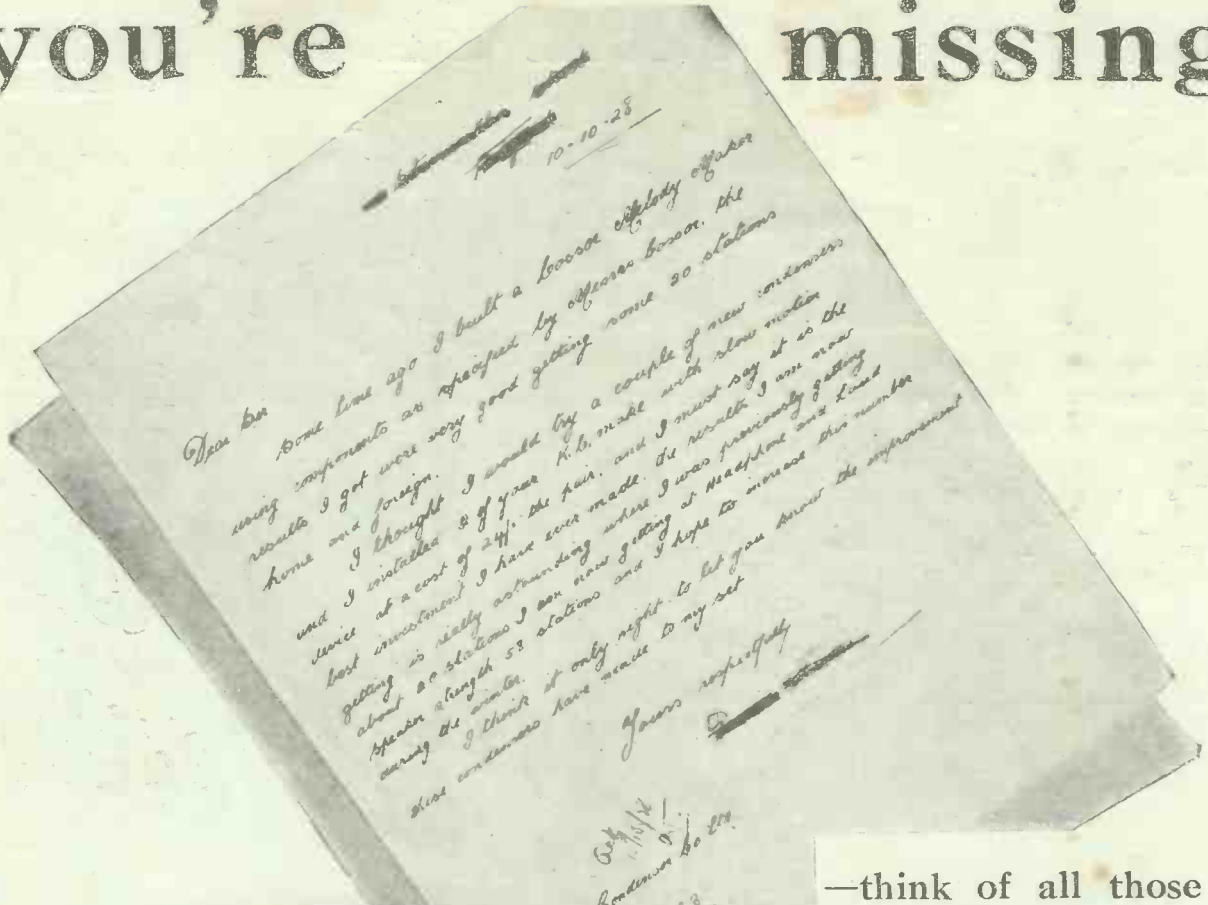 you're missing
10-10-28
Dear Sir
Some time ago I built a Cossor Melody Maker
using components as specified by Messrs Cossor. the
results I got were very good getting some 20 stations
home and foreign.
I thought I would try a couple of new condensers
and I installed 2 of your K.C. make with slow motion
device at a cost of 24/- the pair, and I must say it is the
best investment I have ever made. the results I am now
getting is really astounding where I was previously getting
about 20 stations I am now getting at Headphone and Loud
speaker strength 53 stations and I hope to increase this number
during the winter.
I think it only right to let you know the improvement
these condensers have made to my set
Yours respectfully
Condenser Co Ltd.
—think of all those